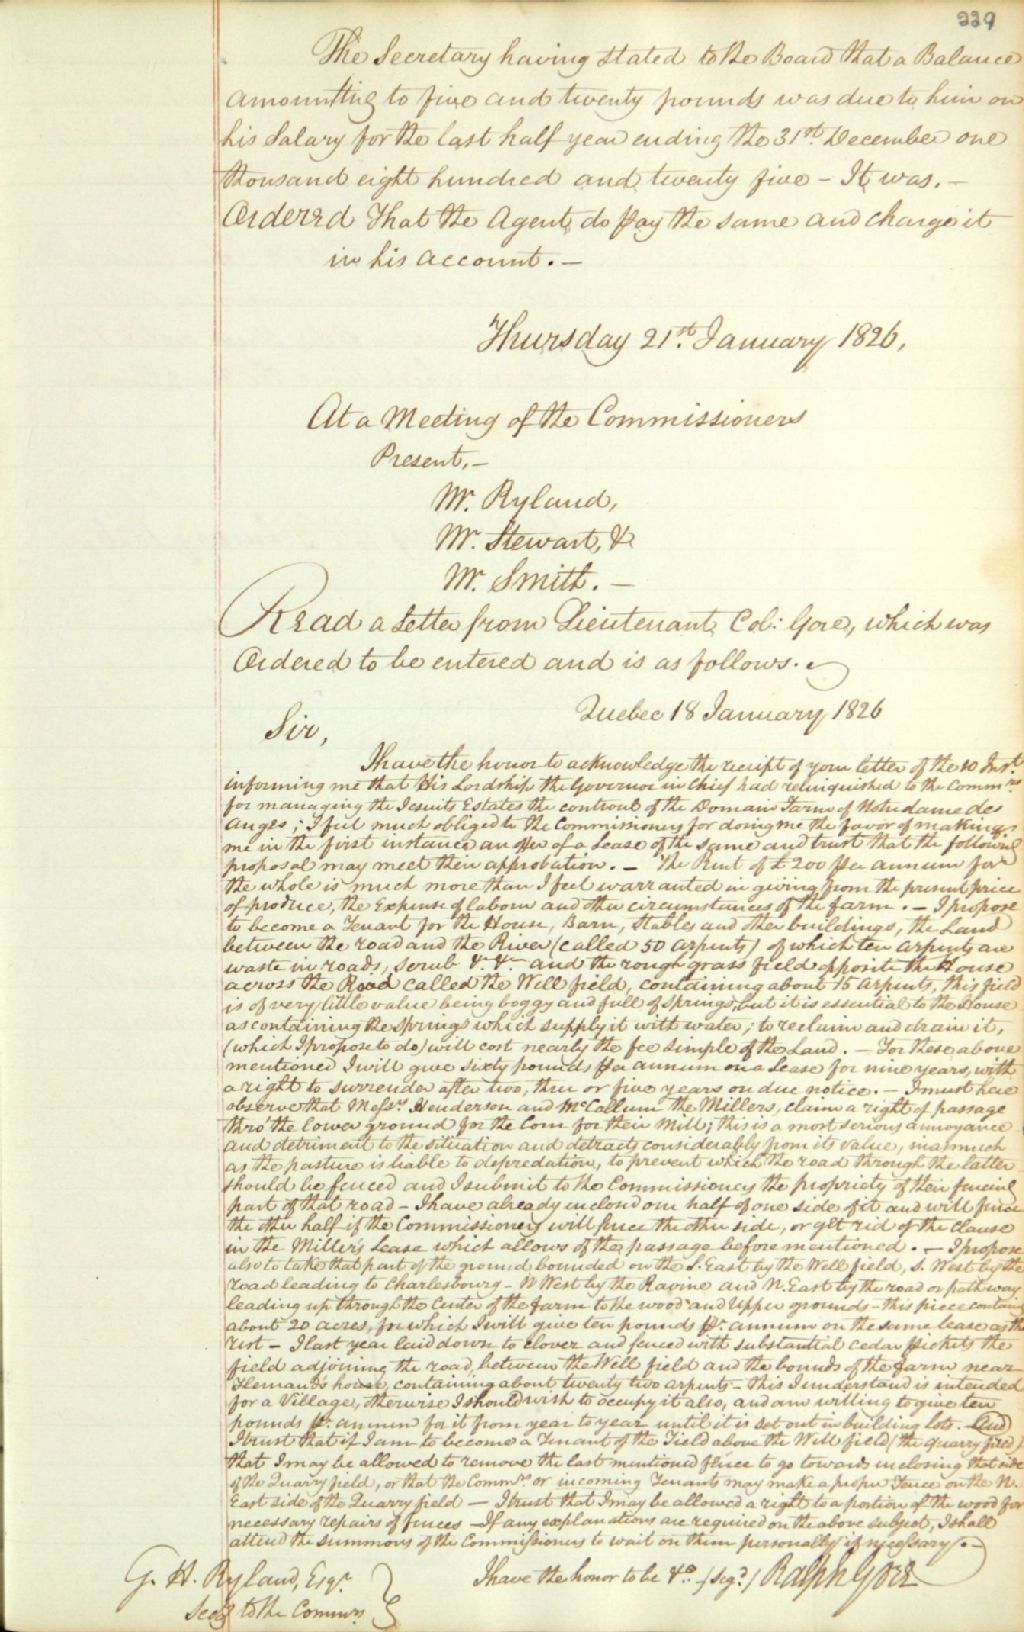 229
The Secretary having stated to the Board that a Balance
amounting to five and twenty pounds was due to him on
his Salary for the last half year ending the 31st December one
thousand eight hundred and twenty five - It was, -
Ordered That the Agent do pay the same and charge it
in his account. -
Thursday 21st January 1826,
At a Meeting of the Commissioners
Present, -
Mr. Ryland,
Mr. Stewart, &
Mr. Smith. -
Read a Letter from Lieutenant Col: Gore, which was
Ordered to be entered and is as follows.
Quebec 18 January 1826
Sir,
I have the honor to acknowledge the receipt of your letter of the 10 Inst
informing me that His Lordship the Governor in Chief had relinquished to the Commrs
for managing the Jesuits Estates the controul of the Domain Farm of Notre dame des
anges; I feel much obliged to the Commissioners for doing me the favor of making
me in the first instance an offer of a Lease of the same and trust that the following
proposal may meet their approbation. - The Rent of £200 per annum for
the whole is much more than I feel warranted in giving from the present price
of produce, the Expense of labour and other circumstances of the farm. - I propose
to become a Tenant for the House, Barn, Stables and other buildings, the Land
between the road and the River (called 50 arpents) of which ten arpents are
waste in roads, scrub &c &c and the rough grass field opposite the House
across the Road called the Well field, containing about 15 arpents, this field
is of very little value being boggy and full of springs, but it is essential to the House
as containing the springs which supply it with water; to reclaim and drain it,
(which I propose to do) will cost nearly the fee simple of the Land. - For these above
mentioned I will give sixty pounds per annum on a Lease for nine years, with
a right to surrender after two, three or five years on due notice. - I must here
observe that Messrs. Henderson and McCallum the Millers, claim a right of passage
thro' the lower ground for the Corn for their Mill; this is a most serious annoyance
and detriment to the situation and detracts considerably from its value, inasmuch
as the pasture is liable to depredation, to prevent which the road through the latter
should be fenced and I submit to the Commissioners the propriety of their fencing
part of that road - I have already enclosed one half of one side of it and will fence
the other half if the Commissioners will fence the other side, or get rid of the clause
in the Miller's Lease which allows of the passage before mentioned. - I propose
also to take that part of the ground bounded on the S. East by the Well field, S. West by the
road leading to Charlesbourg - N West by the Ravine and N. East by the road or pathway
leading up through the Center of the farm to the wood and Upper grounds - this piece contains
about 20 acres, for which I will give ten pounds pr. annum on the same lease as the
rest - I last year laid down to clover and fenced with substantial cedar pickets the
field adjoining the road, between the Well field and the bounds of the farm near
house, containing about twenty two arpents - this I understand is intended
for a Village, otherwise I should wish to occupy it also, and am willing to give ten
pounds pr. annum for it from year to year until it is set out in building lots. - And
I trust that if I am to become a Tenant of the Field above the Well field (the quarry field)
that I may be allowed to remove the last mentioned fence to go towards inclosing that side
of the Quarry field, or that the Commrs or incoming Tenants may make a proper Fence on the N.
East side of the Quarry field - I trust that I may be allowed a right to a portion of the wood for
necessary repairs of fences - If any explanations are required on the above subject, I shall
attend the summons of the Commissioners to wait on them personally if necessary. -
I have the honor to be &c. (sigd) Ralph Gore
G. H. Ryland, Esqr.
Secy to the Commrs